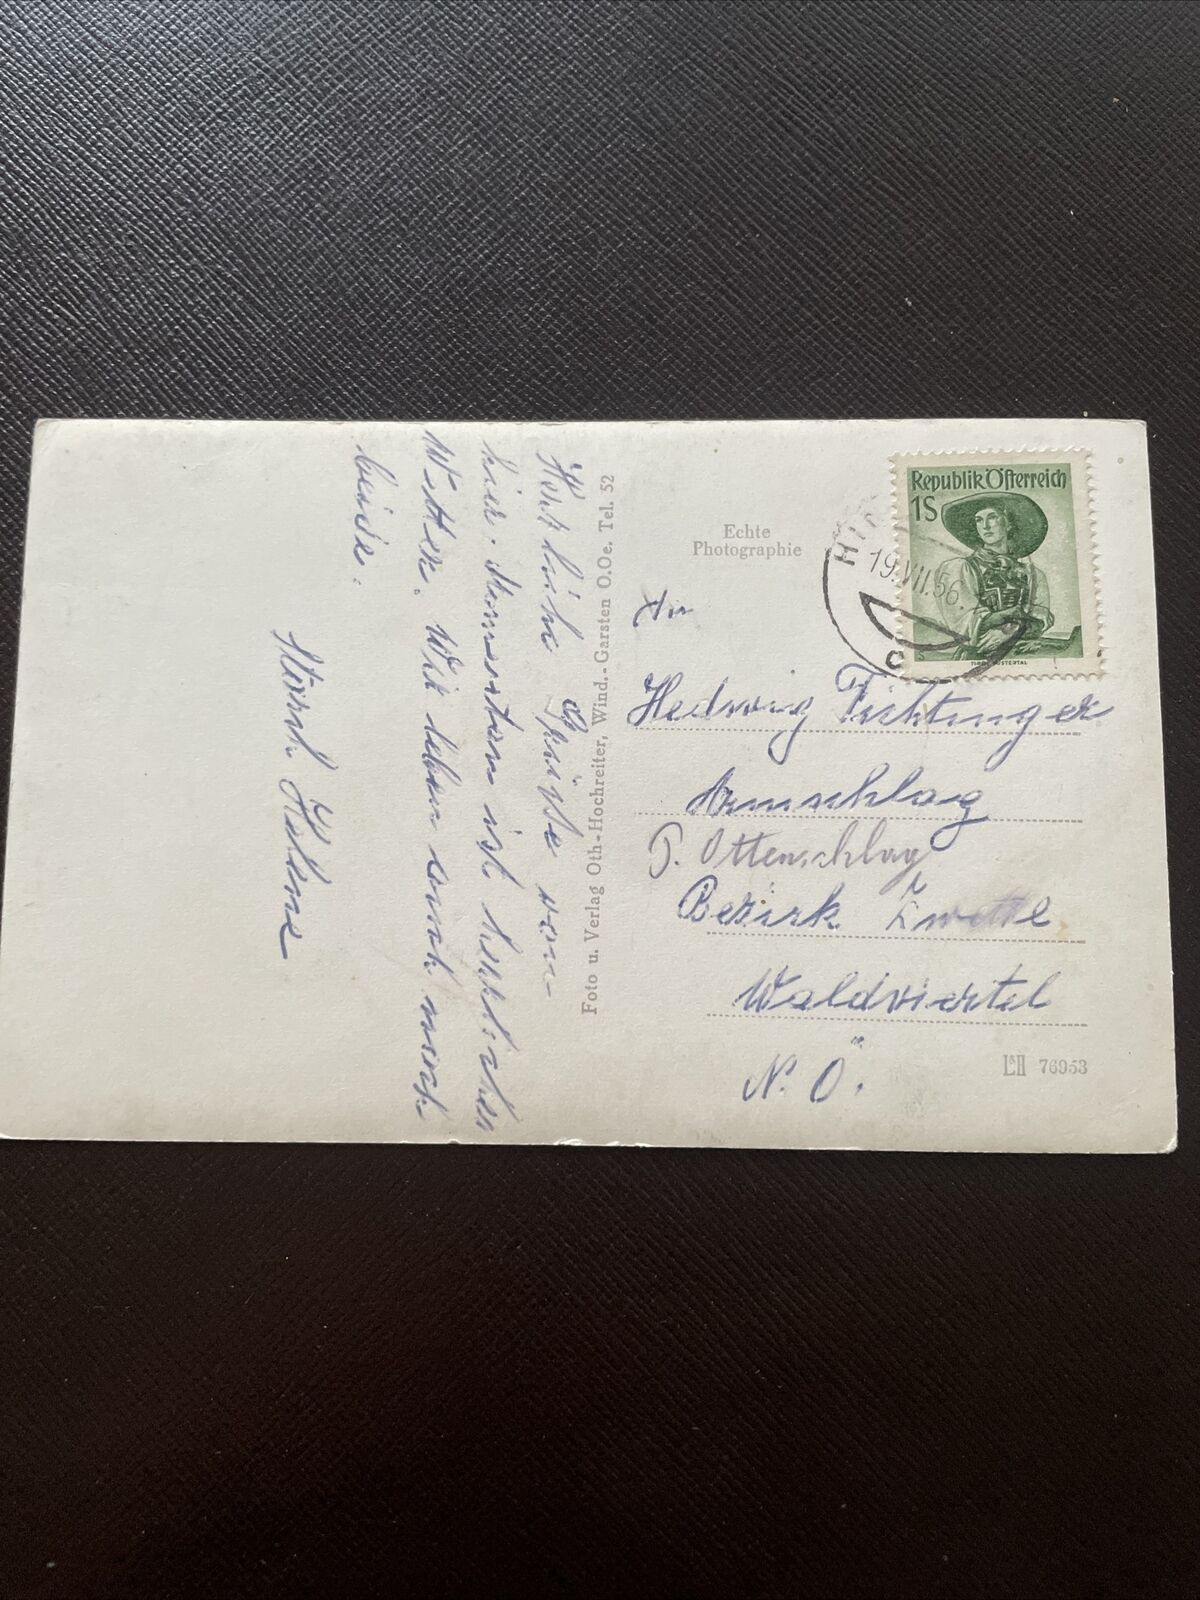 Herzliche Grüße von
hier. Momentan ist herrliches
Wetter. Wir leben auch noch
beide.
Helene
Foto u. Verlag Oth-Hochreiter, Wind.-Garsten O.Oe. Tel. 52
Echte
Photographie
Republik Österreich
1S
TIROL PUSTERTAL
19.VII.56.
An
Hedwig Fichtinger
Armschlag
P. Ottenschlag
Bezirk Zwettl
Waldviertel
N. Ö.
76953